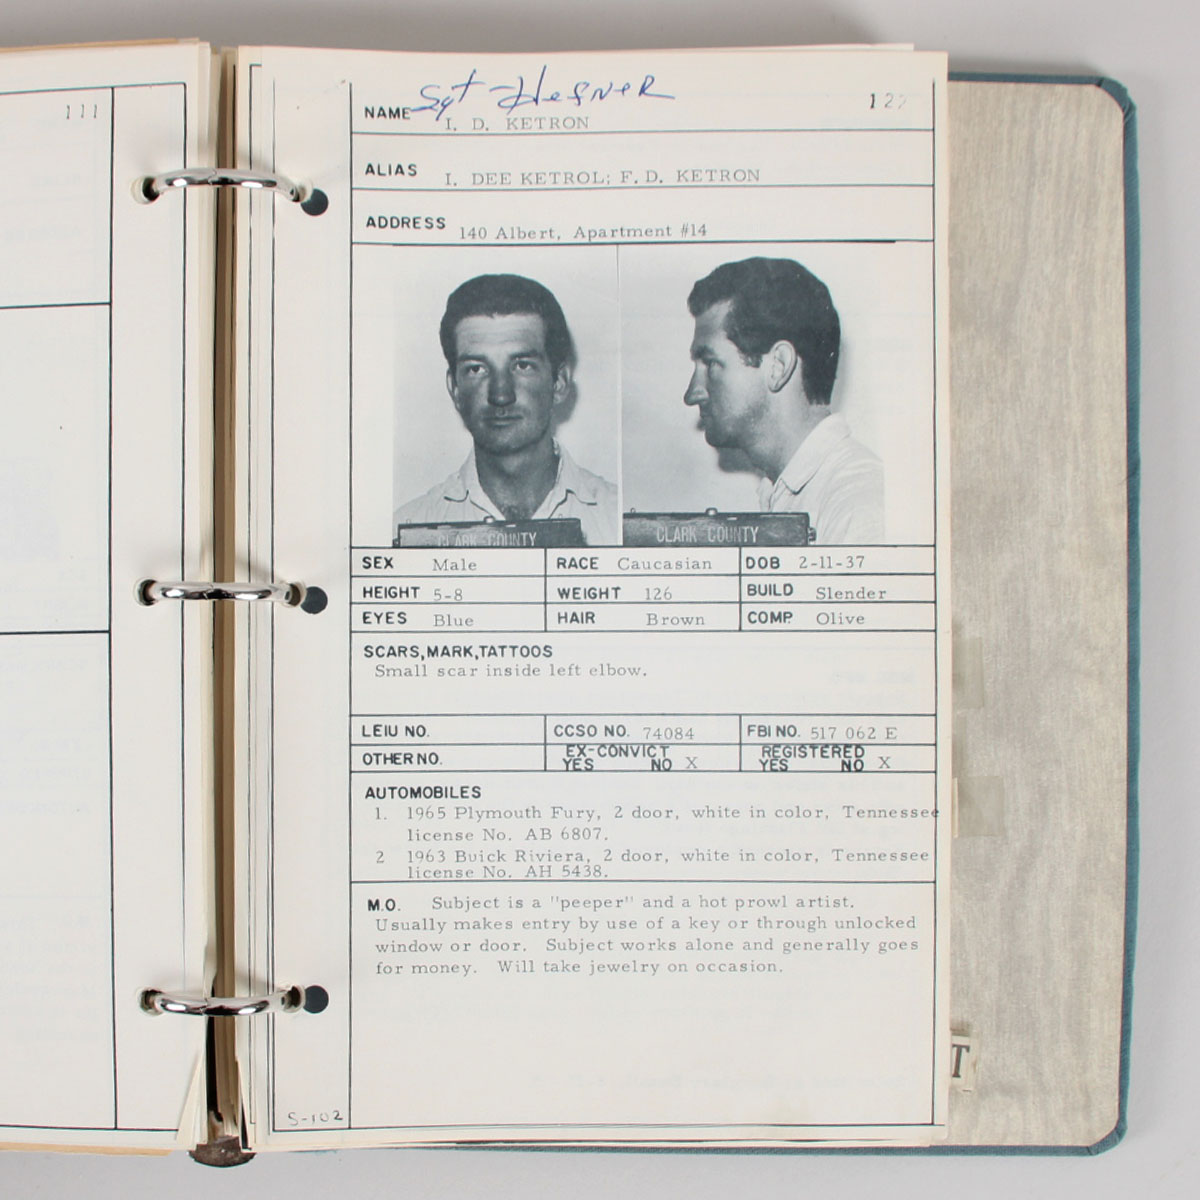 111
Sgt Hefner
122
NAME I. D. KETRON
ALIAS I. DEE KETROL; F. D. KETRON
ADDRESS 140 Albert, Apartment #14
CLARK COUNTY CLARK COUNTY
SEX Male RACE Caucasian DOB 2-11-37
HEIGHT 5-8 WEIGHT 126 BUILD Slender
EYES Blue HAIR Brown COMP. Olive
SCARS, MARK, TATTOOS
Small scar inside left elbow.
LEIU NO. CCSO NO. 74084 FBI NO. 517 062 E
OTHER NO. EX-CONVICT REGISTERED
YES NO X YES NO X
AUTOMOBILES
1. 1965 Plymouth Fury, 2 door, white in color, Tennessee
license No. AB 6807.
2 1963 Buick Riviera, 2 door, white in color, Tennessee
license No. AH 5438.
M.O. Subject is a "peeper" and a hot prowl artist.
Usually makes entry by use of a key or through unlocked
window or door. Subject works alone and generally goes
for money. Will take jewelry on occasion.
T
S-102